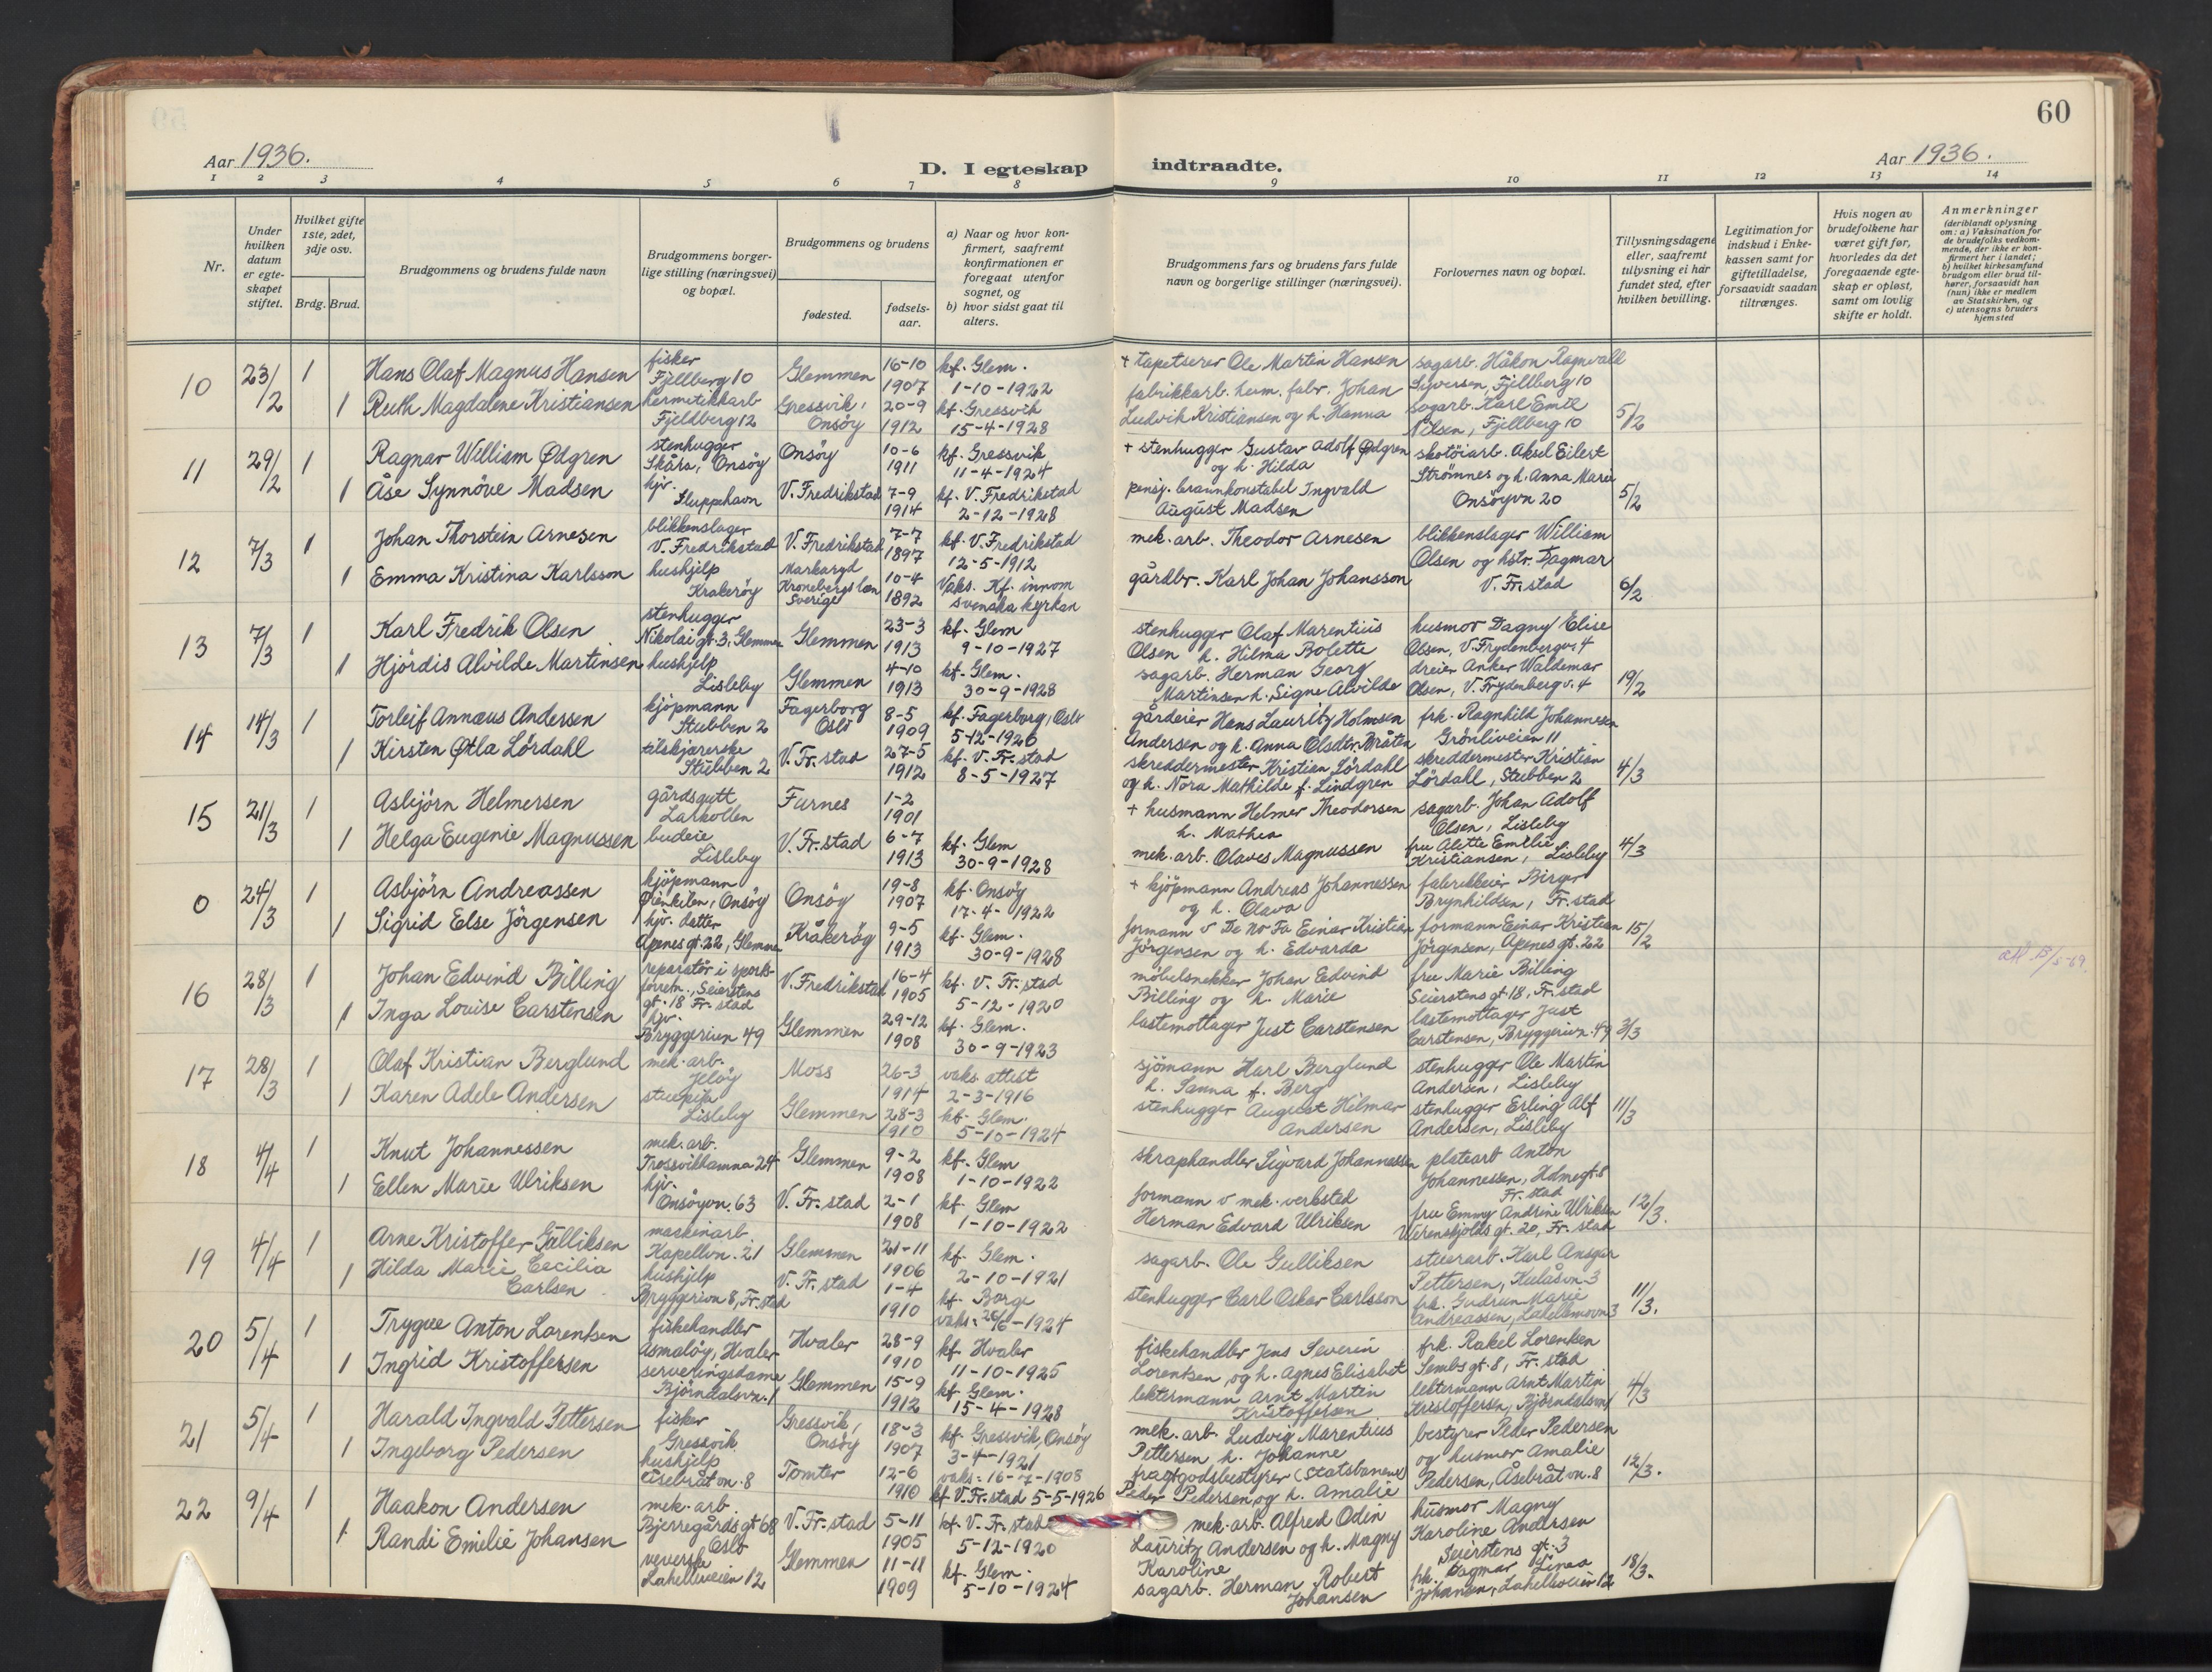 60
Aar 1936.
D. I egteskap indtraadte.
Aar 1936.
1 2 3 4 5 6 7 8 9 10 11 12 13 14
Nr.
Under
hvilken
datum
er egte-
skapet
stiftet.
Hvilket gifte
1ste, 2det,
3dje osv.
Brdg. Brud.
Brudgommens og brudens fulde navn
Brudgommens borger-
lige stilling (næringsvei)
og bopæl.
Brudgommens og brudens
fødested.
fødsels-
aar.
a) Naar og hvor kon-
firmert, saafremt
konfirmationen er
foregaat utenfor
sognet, og
b) hvor sidst gaat til
alters.
Brudgommens fars og brudens fars fulde
navn og borgerlige stillinger (næringsvei).
Forlovernes navn og bopæl.
Tillysningsdagene
eller, saafremt
tillysning ei har
fundet sted, efter
hvilken bevilling.
Legitimation for
indskud i Enke-
kassen samt for
giftetilladelse,
forsaavidt saadan
tiltrænges.
Hvis nogen av
brudefolkene har
været gift før,
hvorledes da det
foregaaende egte-
skap er opløst,
samt om lovlig
skifte er holdt.
Anmerkninger
(deriblandt oplysning
om: a) Vaksination for
de brudefolks vedkom-
mende, der ikke er kon-
firmert her i landet;
b) hvilket kirkesamfund
brudgom eller brud til-
hører, forsaavidt han
(hun) ikke er medlem
av Statskirken, og
c) utensogns bruders
hjemsted
10
23/2
1
Hans Olaf Magnus Hansen
fisker
Fjellberg 10
Glemmen
16-10
1907
kf. Glem.
1-10-1922
+ tapetserer Ole Martin Hansen
sagarb. Håkon Ragnvald
Syversen, Fjellberg 10
1
Ruth Magdalene Kristiansen
hermetikkarb
Fjeldberg 12
Gressvik,
Onsöy
20-9
1912
kf. Gressvik
15-4-1928
fabrikkarb. hum. fabr. Johan
Ludvik Kristiansen og h. Hanna
sagarb. Karl Emil
Nilsen, Fjellberg 10
5/2
11
29/2
1
Ragnar William Ødgren
stenhugger
Skåra, Onsöy
Onsöy
10-6
1911
kf. Gressvik
11-4-1924
+ stenhugger Gustav Adolf Ødgren
og h. Hilda
skotöiarb. Aksel Eilert
Strömnes og h. Anna Marie
Onsöyvn 20
1
Åse Synnöve Madsen
hjv.
Sluppehavn
V. Fredrikstad
7-9
1914
kf. V. Fredrikstad
2-12-1928
pensj. brannkonstabel Ingvald
August Madsen
5/2
12
7/3
1
Johan Thorstein Arnesen
blikkenslager
V. Fredrikstad
V. Fredrikstad
7-7
1897
kf. V. Fredrikstad
12-5-1912
mek. arb. Theodor Arnesen
blikkenslager William
Olsen og hstr. Dagmar
V. Fr.stad
1
Emma Kristina Karlsson
hushjelp
Krakeröy
Markaryd
Kronebergs læn
Sverige
10-4
1892
Vaks. Kf. innom
svenska kyrkan
gårdbr. Karl Johan Johansson
6/2
13
7/3
1
Karl Fredrik Olsen
stenhugger
Nikolai gt. 3, Glemmen
Glemmen
23-3
1913
kf. Glem
9-10-1927
stenhugger Olaf Marentius
Olsen h. Hilma Bolette
husmor Dagny Elise
Olsen, V. Frydenbergv. 4
1
Hjördis Alvilde Martinsen
hushjelp
Lisleby
Glemmen
4-10
1913
kf. Glem.
30-9-1928
sagarb. Herman Georg
Martinsen h. Signe Alvilde
dreier Anker Waldemar
Olsen, V. Frydenberg v. 4
19/2
14
14/3
1
Torleif Annæus Andersen
kjöpmann
Stubben 2
Fagerborg
Oslo
8-5
1909
kf. Fagerborg, Oslo
5-12-1926
gårdeier Hans Lauritz Holmsen
Andersen og h. Anna Olsdtr. Bråten
frk. Ragnhild Johannesen
Grönliveien 11
1
Kirsten Øtla Lördahl
tilskjærerske
Stubben 2
V. Fr. stad
27-5
1912
kf. V. Fr. stad
8-5-1927
skreddermester Kristian Lördahl
og h. Nora Mathilde f. Lindgren
skreddermester Kristian
Lördahl, Stubben 2
4/3
15
21/3
1
Asbjörn Helmersen
gårdsgutt
Larkollen
Furnes
1-2
1901
+ husmann Helmer Theodorsen
h. Mathea
sagarb. Johan Adolf
Olsen, Lisleby
1
Helga Eugenie Magnussen
budeie
Lisleby
V. Fr. stad
6-7
1913
kf. Glem
30-9-1928
mek. arb. Olaves Magnussen
fru Alette Emilie
Kristiansen, Lisleby
4/3
0
24/3
1
Asbjörn Andreassen
kjöpmann
Ørekilen, Onsöy
Onsöy
19-8
1907
kf. Onsöy
17-4-1922
+ kjöpmann Andreas Johannessen
og h. Olava
fabrikkeier Birger
Brynhildsen, Fr. stad
1
Sigrid Else Jörgensen
hjv. datter
Apenes gt. 22, Glemmen
Kråkeröy
9-5
1913
kf. Glem.
30-9-1928
formann v De No Fa Einar Kristian
Jörgensen og h. Edvarda
formann Einar Kristian
Jörgensen, Apenes gt. 22
15/2
16
28/3
1
Johan Edvind Billing
reparatör i sports-
forretn., Seierstens
gt. 18 Fr. stad
V. Fredrikstad
16-4
1905
kf. V. Fr. stad
5-12-1920
möbelsnekker Johan Edvind
Billing og h. Marie
fru Marie Billing
Seierstens gt 18, Fr. stad
1
Inga Louise Carstensen
hjv.
Bryggerivn 49
Glemmen
29-12
1908
kf. Glem.
30-9-1923
lastemottager Just Carstensen
lastemottager Just
Carstensen, Bryggerivn. 49
3/3
17
28/3
1
Olaf Kristian Berglund
mek. arb.
Jelöy
Moss
26-3
1914
vaks. attest
2-3-1916
sjömann Harl Berglund
h. Sanna f. Berg
stenhugger Ole Martin
Andersen, Lisleby
1
Karen Adele Andersen
stuepike
Lisleby
Glemmen
28-3
1910
kf. Glem.
5-10-1924
stenhugger August Hilmar
Andersen
stenhugger Erling Alf
Andersen, Lisleby
11/3
18
4/4
1
Knut Johannessen
mek. arb.
Trossvikhamna 24
Glemmen
9-2
1908
kf. Glem
1-10-1922
skraphandler Sigvard Johannessen
platearb Anton
Johannessen, Holmegt. 8
Fr. stad
1
Ellen Marie Ulriksen
hjv.
Onsöyvn. 63
V. Fr. stad
2-1
1908
kf. Glem
1-10-1922
formann v mek. verksted
Herman Edvard Ulriksen
fru Emmy Andrine Ulriksen
Werenskjolds gt. 20, Fr. stad
12/3.
19
4/4
1
Arne Kristoffer Gulliksen
maskinarb.
Kapellvn. 21
Glemmen
21-11
1906
kf. Glem.
2-10-1921
sagarb. Ole Gulliksen
stuerarb. Karl Ansgar
Pettersen, Kulåsvn 3
1
Hilda Marie Cecilia
Carlsen
hushjelp
Bryggerivn 8, Fr. stad
V. Fr. stad
1-4
1910
kf. Borge
vaks. 26/6-1924
stenhugger Carl Oskar Carlsson
frk. Gudrun Marie
Andreassen, Lahellemovn 3
11/3.
20
5/4
1
Trygve Anton Lorentsen
fiskehandler
Asmalöy, Hvaler
Hvaler
28-9
1910
kf Hvaler
11-10-1925
fiskehandler Jens Severin
Lorentsen, og h. Agnes Elisabet
frk. Rakel Lorentsen
Sembs gt. 8, Fr. stad
1
Ingrid Kristoffersen
serveringsdame
Björndalsvn. 1
Glemmen
15-9
1912
kf. Glem.
15-4-1928
lektermann Arnt Martin
Kristoffersen
lektermann Arnt Martin
Kristoffersen, Björndalsvn 1
4/3
21
5/4
1
Harald Ingvald Pettersen
fisker
Gressvik
Gressvik,
Onsöy
18-3
1907
kf. Gressvik, Onsöy
3-4-1921
mek. arb. Ludvig Marentius
Pettersen h. Johanne
bestyrer Peder Pedersen
og husmor Amalie
Pedersen, Åsebråt vn. 8
1
Ingeborg Pedersen
hushjelp
Åsebråt vn. 8
Tomter
12-6
1910
vaks. 16-7-1908
kf V. Fr. stad 5-5-1926
fragtgodsbestyrer (Statsbanene)
Peder Pedersen, og h. Amalie
12/3.
22
9/4
1
Haakon Andersen
mek. arb.
Bjerregårds gt 68
Oslo
V. Fr. stad
5-11
1905
kf. V. Fr. stad
5-12-1920
mek. arb. Alfred Odin
Lauritz Andersen og h. Magny
Karoline
husmor Magny
Karoline Andersen
Seierstens gt. 3
1
Randi Emilie Johansen
veverske
Lahelleveien 12
Glemmen
11-11
1909
kf. Glem.
5-10-1924
sagarb. Herman Robert
Johansen
frk. Dagmar Linea
Johansen, Lahelleveien 12
18/3.